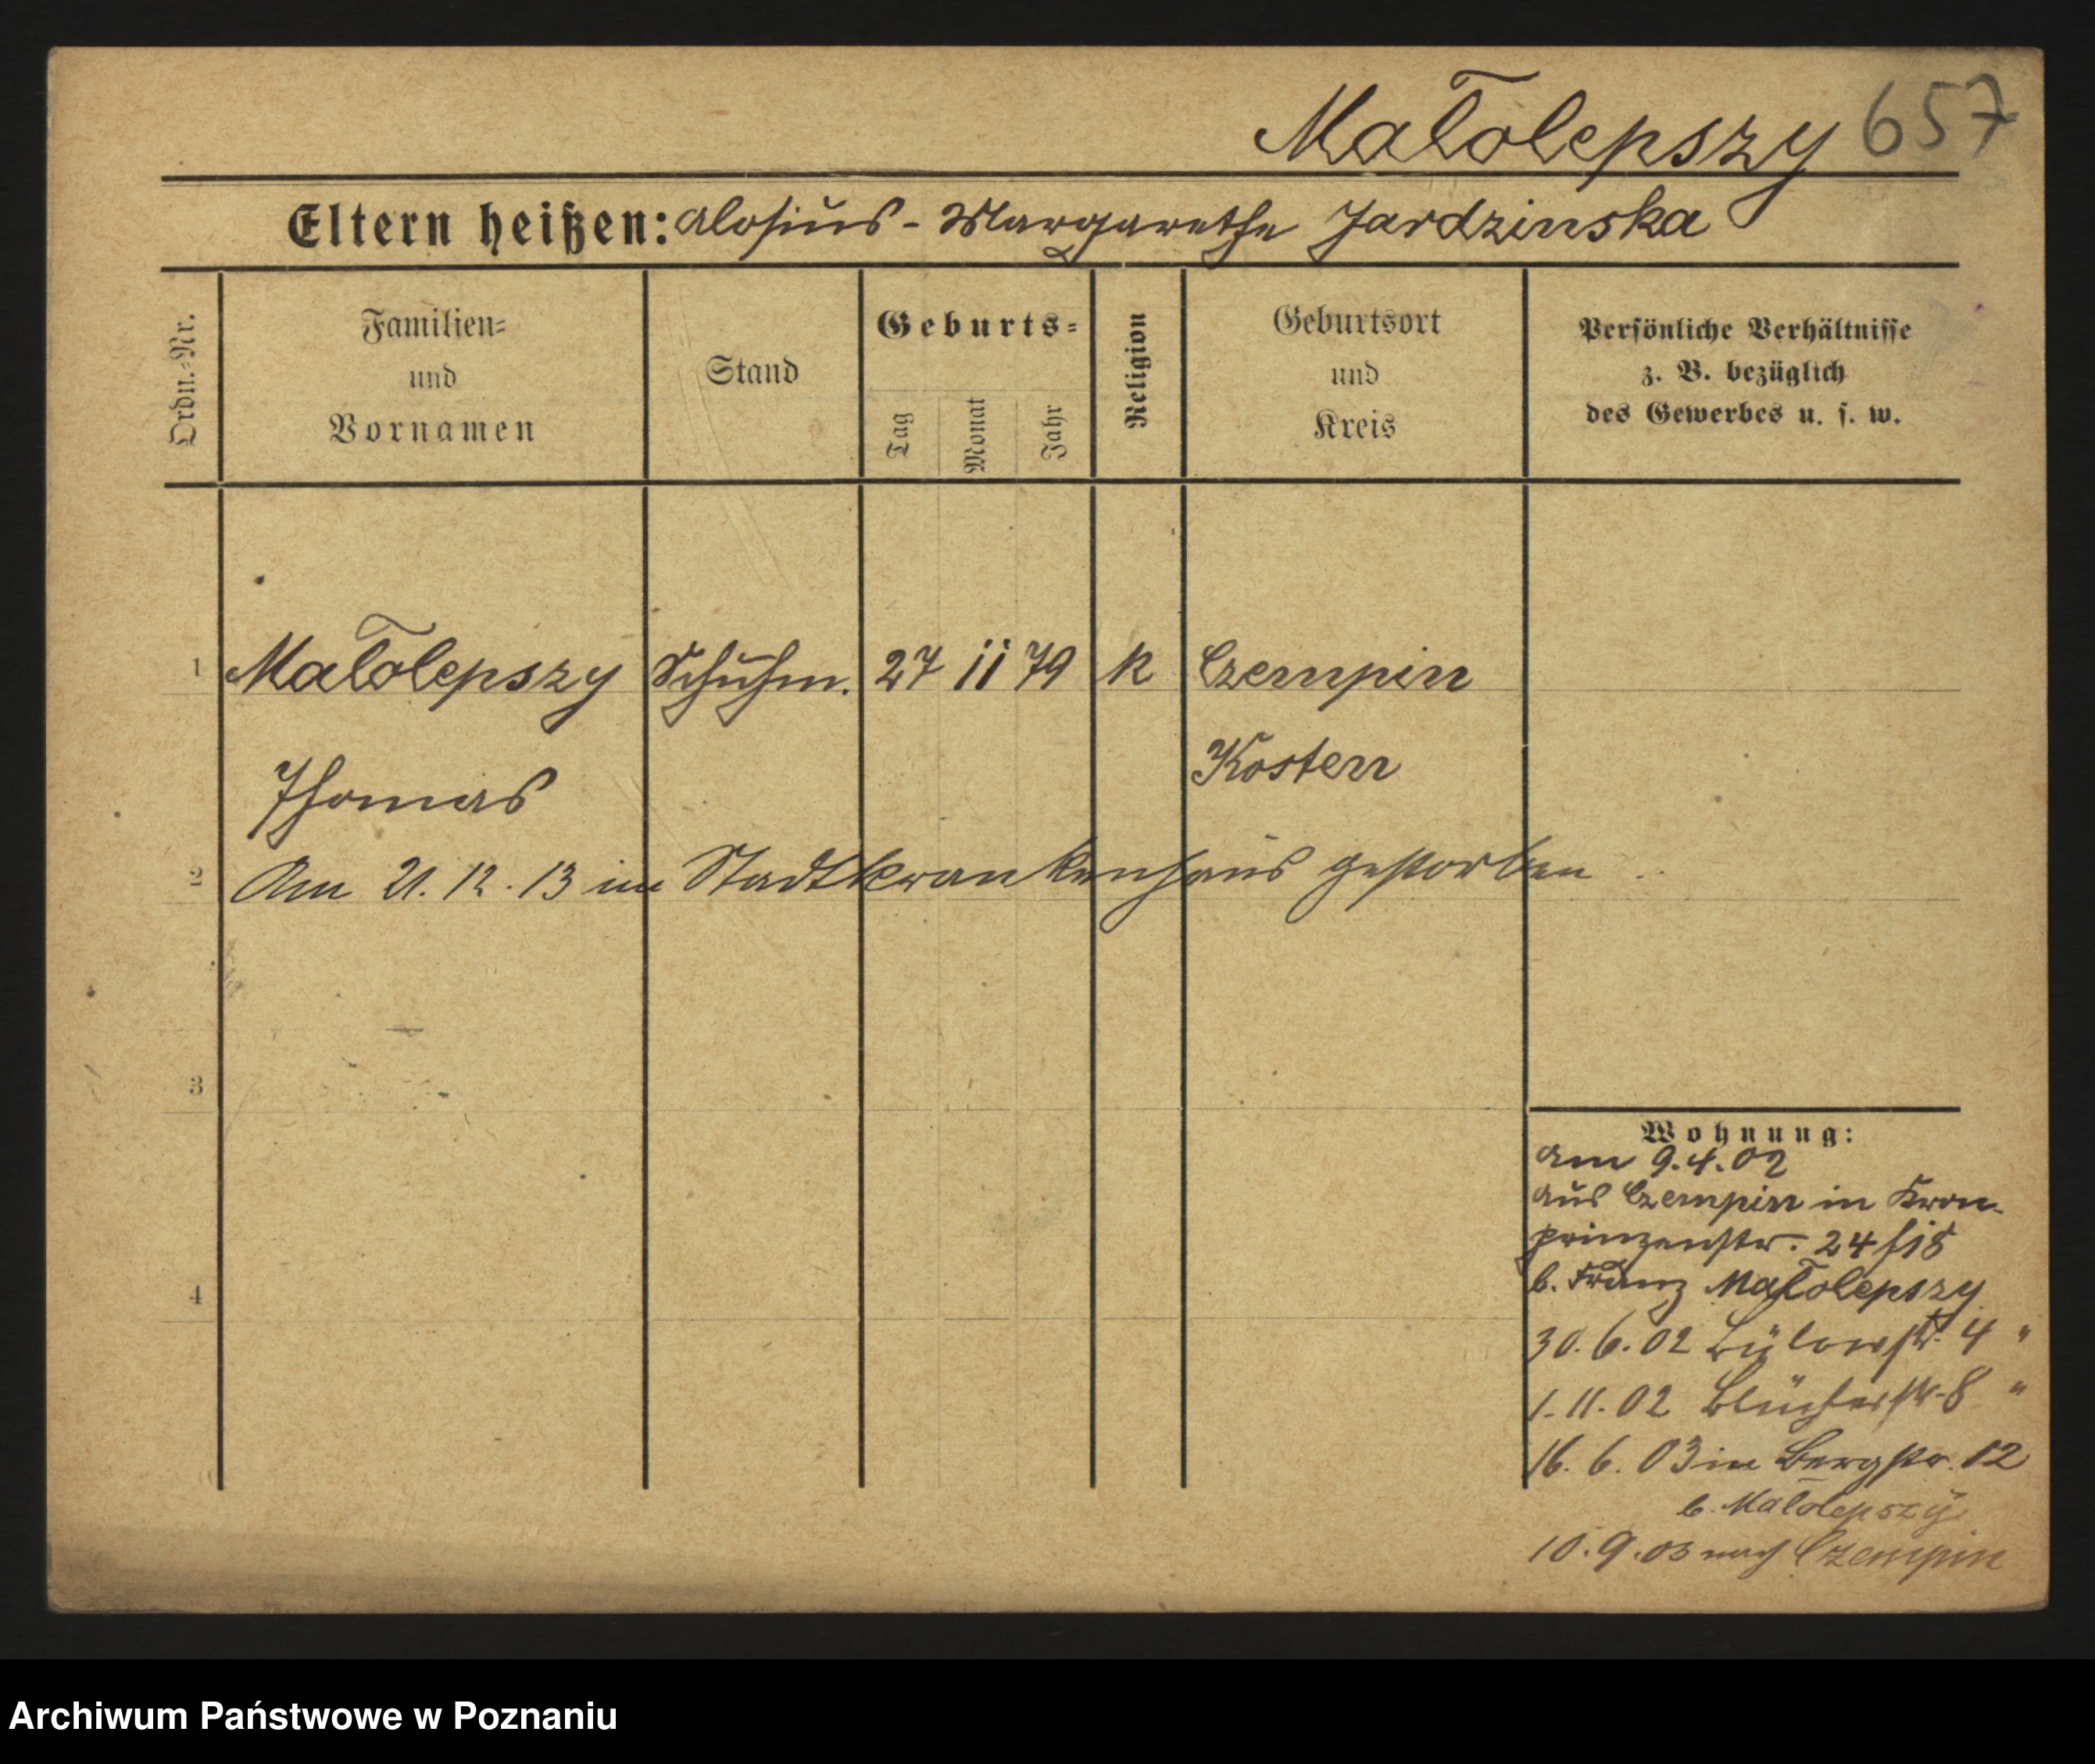 Małolepszy 657
Eltern heißen: Alosius - Margarethe Jardzinska
Ordn.-Nr.
Familien-
und
Vornamen
Stand
Geburts-
Tag
Monat
Jahr
Religion
Geburtsort
und
Kreis
Persönliche Verhältnisse
z. B. bezüglich
des Gewerbes u. s. w.
1 Małolepszy Schuhm. 27 11 79 K Czempin
Kosten
Thomas
2 Am 21.12.13 im Stadtkrankenhaus gestorben
3
4
Wohnung:
am 9.4.02
aus Czempin in Kron-
prinzenstr. 24
b. Franz Małolepszy
30.6.02 Bülowstr. 4 "
1.11.02 Blücherstr. 8 "
16.6.03 in Bergstr. 12
b. Małolepszy
10.9.03 nach Czempin
Archiwum Państwowe w Poznaniu